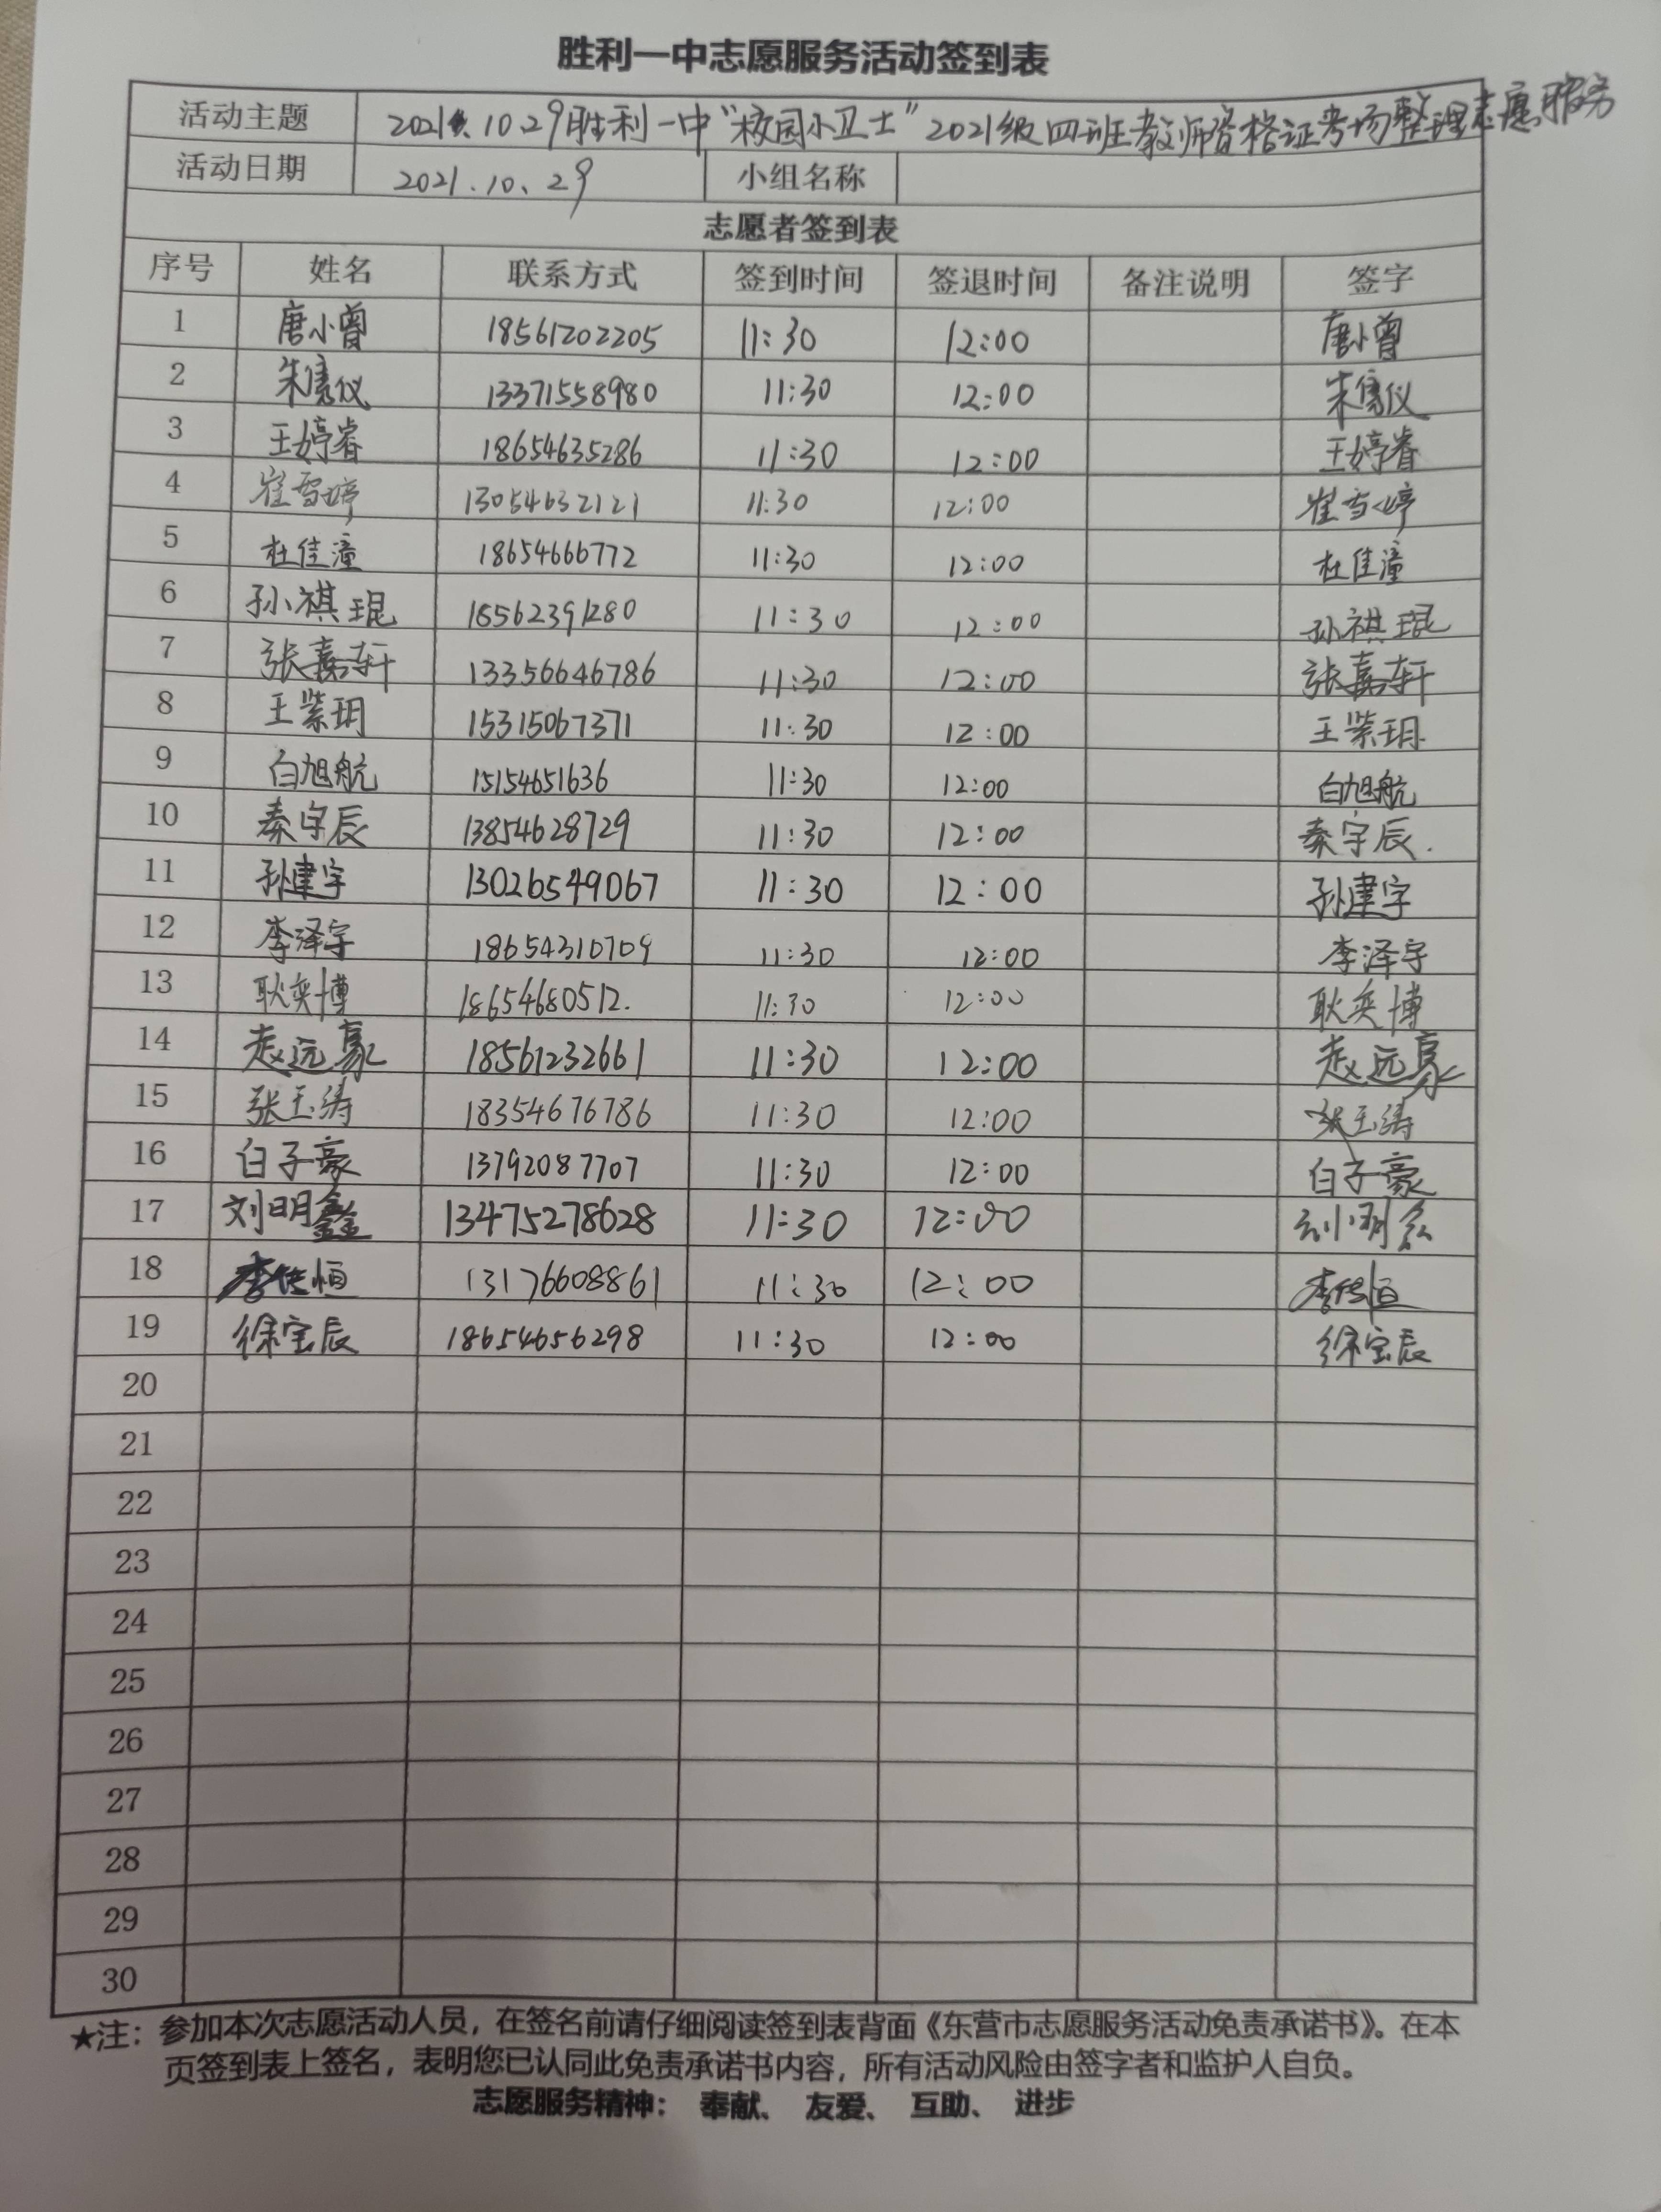 胜利一中志愿服务活动签到表
活动主题 2021.10.29胜利一中“校园小卫士”2021级四班教师资格证考场整理志愿服务
活动日期 2021.10.29 小组名称
志愿者签到表
序号 姓名 联系方式 签到时间 签退时间 备注说明 签字
1 唐小曾 18561202205 11:30 12:00 唐小曾
2 朱隽仪 13371558980 11:30 12:00 朱隽仪
3 王婷睿 18654635286 11:30 12:00 王婷睿
4 崔雪婷 13054632121 11:30 12:00 崔雪婷
5 杜佳潼 18654666772 11:30 12:00 杜佳潼
6 孙祺琨 18562391280 11:30 12:00 孙祺琨
7 张嘉轩 13356646786 11:30 12:00 张嘉轩
8 王紫玥 15315067371 11:30 12:00 王紫玥
9 白旭航 15154651636 11:30 12:00 白旭航
10 秦宇辰 13854628729 11:30 12:00 秦宇辰.
11 孙建宇 13026549067 11:30 12:00 孙建宇
12 李泽宇 18654310709 11:30 12:00 李泽宇
13 耿奕博 18654680512. 11:30 12:00 耿奕博
14 赵远豪 18561232661 11:30 12:00 赵远豪
15 张玉涛 18354676786 11:30 12:00 张玉涛
16 白子豪 13792087707 11:30 12:00 白子豪
17 刘明鑫 13475278628 11:30 12:00 刘明鑫
18 李佳恒 13176608861 11:30 12:00 李佳恒
19 徐宝辰 18654656298 11:30 12:00 徐宝辰
20
21
22
23
24
25
26
27
28
29
30
★注：参加本次志愿活动人员，在签名前请仔细阅读签到表背面《东营市志愿服务活动免责承诺书》。在本
页签到表上签名，表明您已认同此免责承诺书内容，所有活动风险由签字者和监护人自负。
志愿服务精神： 奉献、 友爱、 互助、 进步